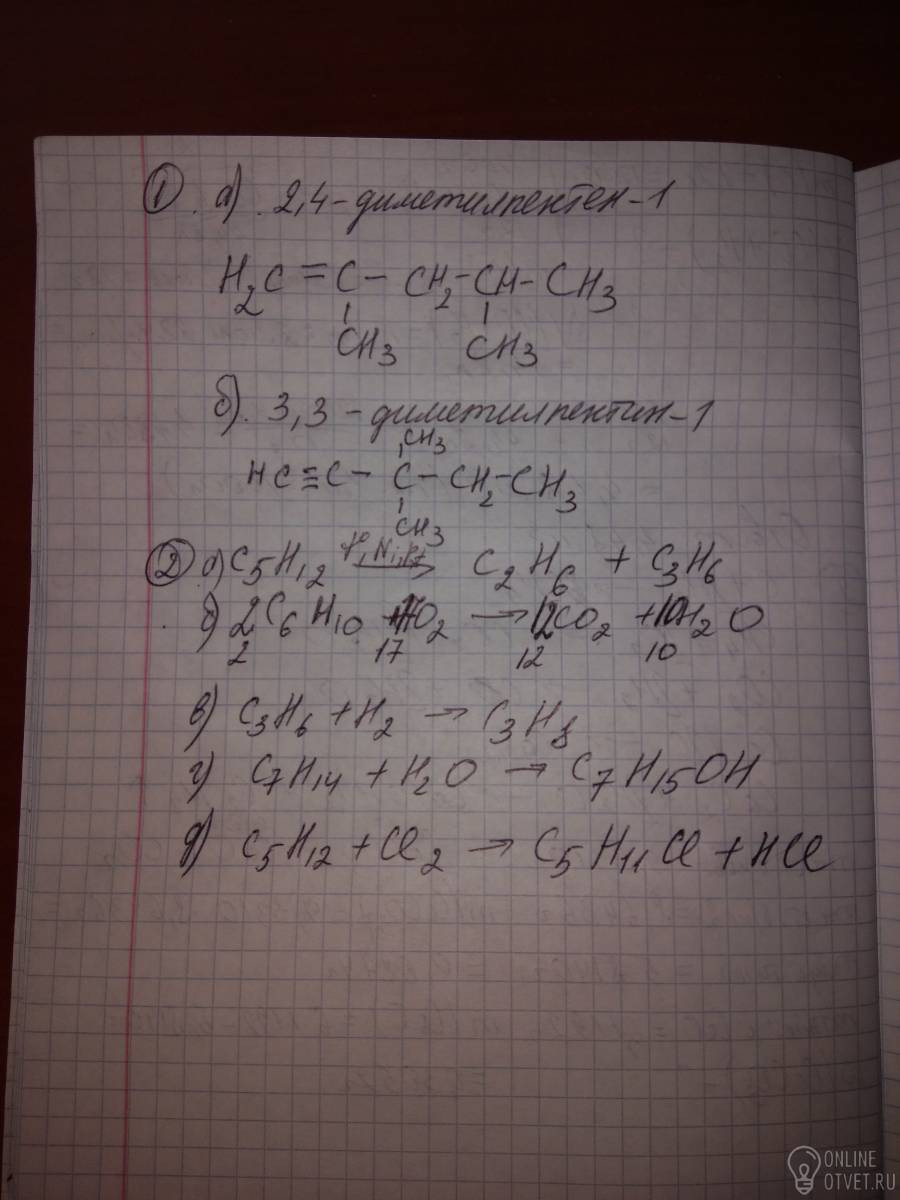 ① а) 2,4-диметилпентен-1
H₂C = C - CH₂ - CH - CH₃
CH₃ CH₃
б). 3,3-диметилпентин-1
CH₃
HC ≡ C - C - CH₂ - CH₃
CH₃
② а) C₅H₁₂ t°, Ni, Pt → C₂H₆ + C₃H₆
б) 2C₆H₁₀ + 17O₂ → 12CO₂ + 10H₂O
2 17 12 10
в) C₃H₆ + H₂ → C₃H₈
г) C₇H₁₄ + H₂O → C₇H₁₅OH
д) C₅H₁₂ + Cl₂ → C₅H₁₁Cl + HCl
ONLINE
OTVET.RU